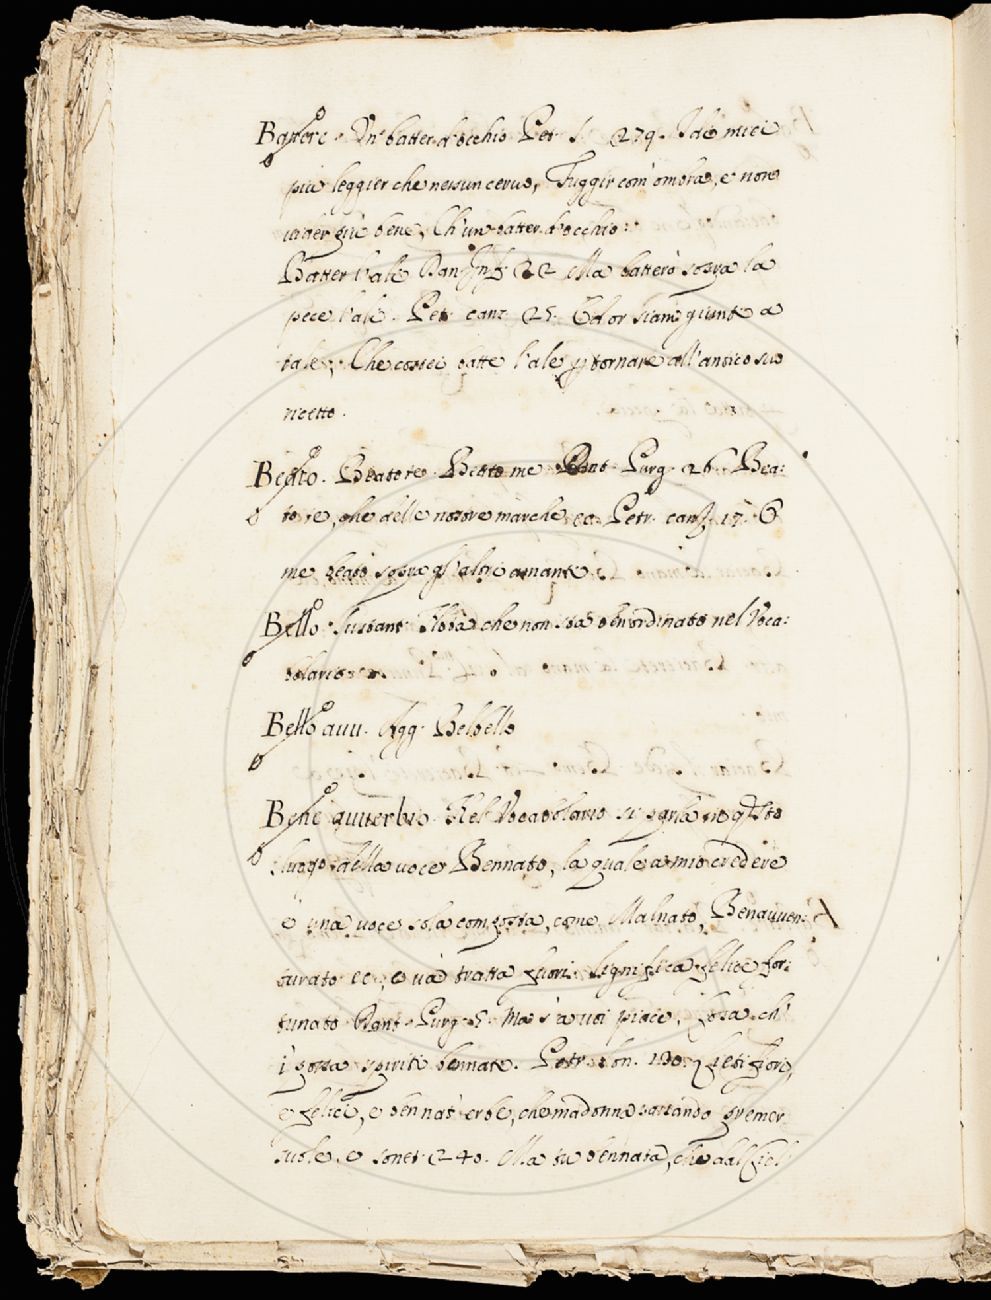 Battere. Un' batter d'occhio Petr. s. 279. I dì miei
più leggier che nessun cervo, Fuggir com' ombra, e non
vider più bene, Ch' un batter d'occhio:
Batter l'ale Dan. Inf. 22 Ma batterò sopra la
pece l'ali. Petr. canz. 25. Et or siam giunte a
tale, Che costei batte l'ale p tornare all'antico suo
ricetto.
Beato. Beatore Beato me Dant. Purg. 26. Bea:
to te, che delle nostre marche, ec. Petr. canz. 17. O
me beato sopra gl'altri amanti.
Bello. Sustant. che non sta ben ordinato nel Voca:
bolario
Bello avv. Agg. Belbello
Bene avverbio. Nel Vocabolario si parla in qsto
luogo della voce Bennato, la quale a mio credere
è una voce sola composta, come Malnato, Benavven:
turato ec, e và tratta fuori. Significa felice for:
tunato Dant. Purg. 5. Ma s'a voi piace, Cosa ch'
i' possa spiriti bennati. Petr. son. 130. Lieti fiori,
e felici, e bennat' erbe, che madonna passando premer
suole. e sonet. 240. Ma tu bennata, che dal Ciel